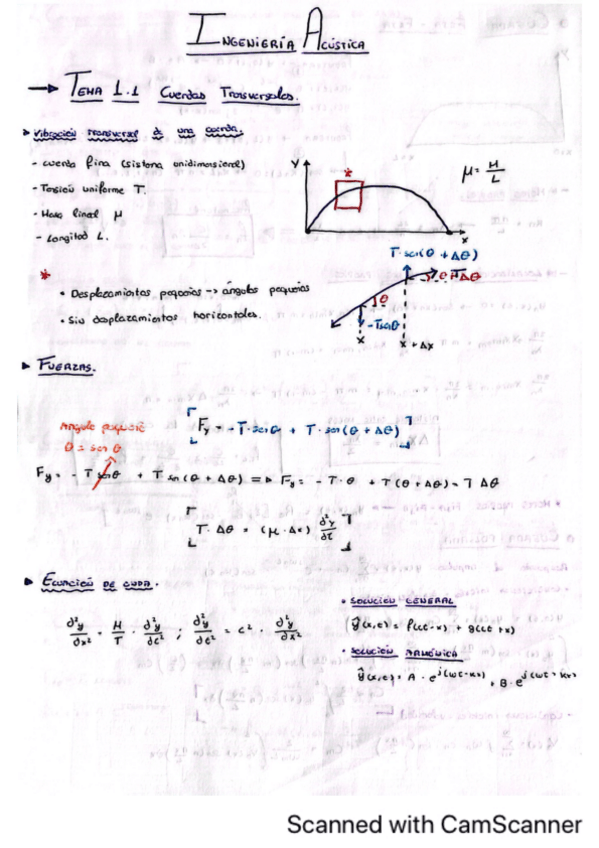 INGENIERÍA ACÚSTICA
→ TEMA 1.1 Cuerdas Transversales.
▸ Vibración transversal de una cuerda.
- cuerda fina (sistema unidimensional)
- Tension uniforme T.
- Masa lineal μ
- Longitud L.
Y
*
x
μ = M/L
*
• Desplazamientos pequeños -> angulos pequeños
• Sin desplazamientos horizontales.
T·sen(θ + Δθ)
θ + Δθ
θ
-Tsenθ
x
x + Δx
▸ FUERZAS.
Angulo pequeño
θ = sen θ
Fy = -T·senθ + T·sen(θ + Δθ)
Fy = - T senθ + T sen(θ + Δθ) => Fy = - T·θ + T(θ + Δθ) = T Δθ
T·Δθ = (μ·Δx) ∂²y/∂t
▸ ECUACIÓN DE ONDA.
∂²y/∂x² = μ/T · ∂²y/∂t² ; ∂²y/∂t² = c² · ∂²y/∂x²
• SOLUCIÓN GENERAL
y(x,t) = f(ct-x) + g(ct+x)
• SOLUCIÓN ARMÓNICA
y(x,t) = A · e^j(ωt-kx) + B · e^j(ωt+kx)
Scanned with CamScanner